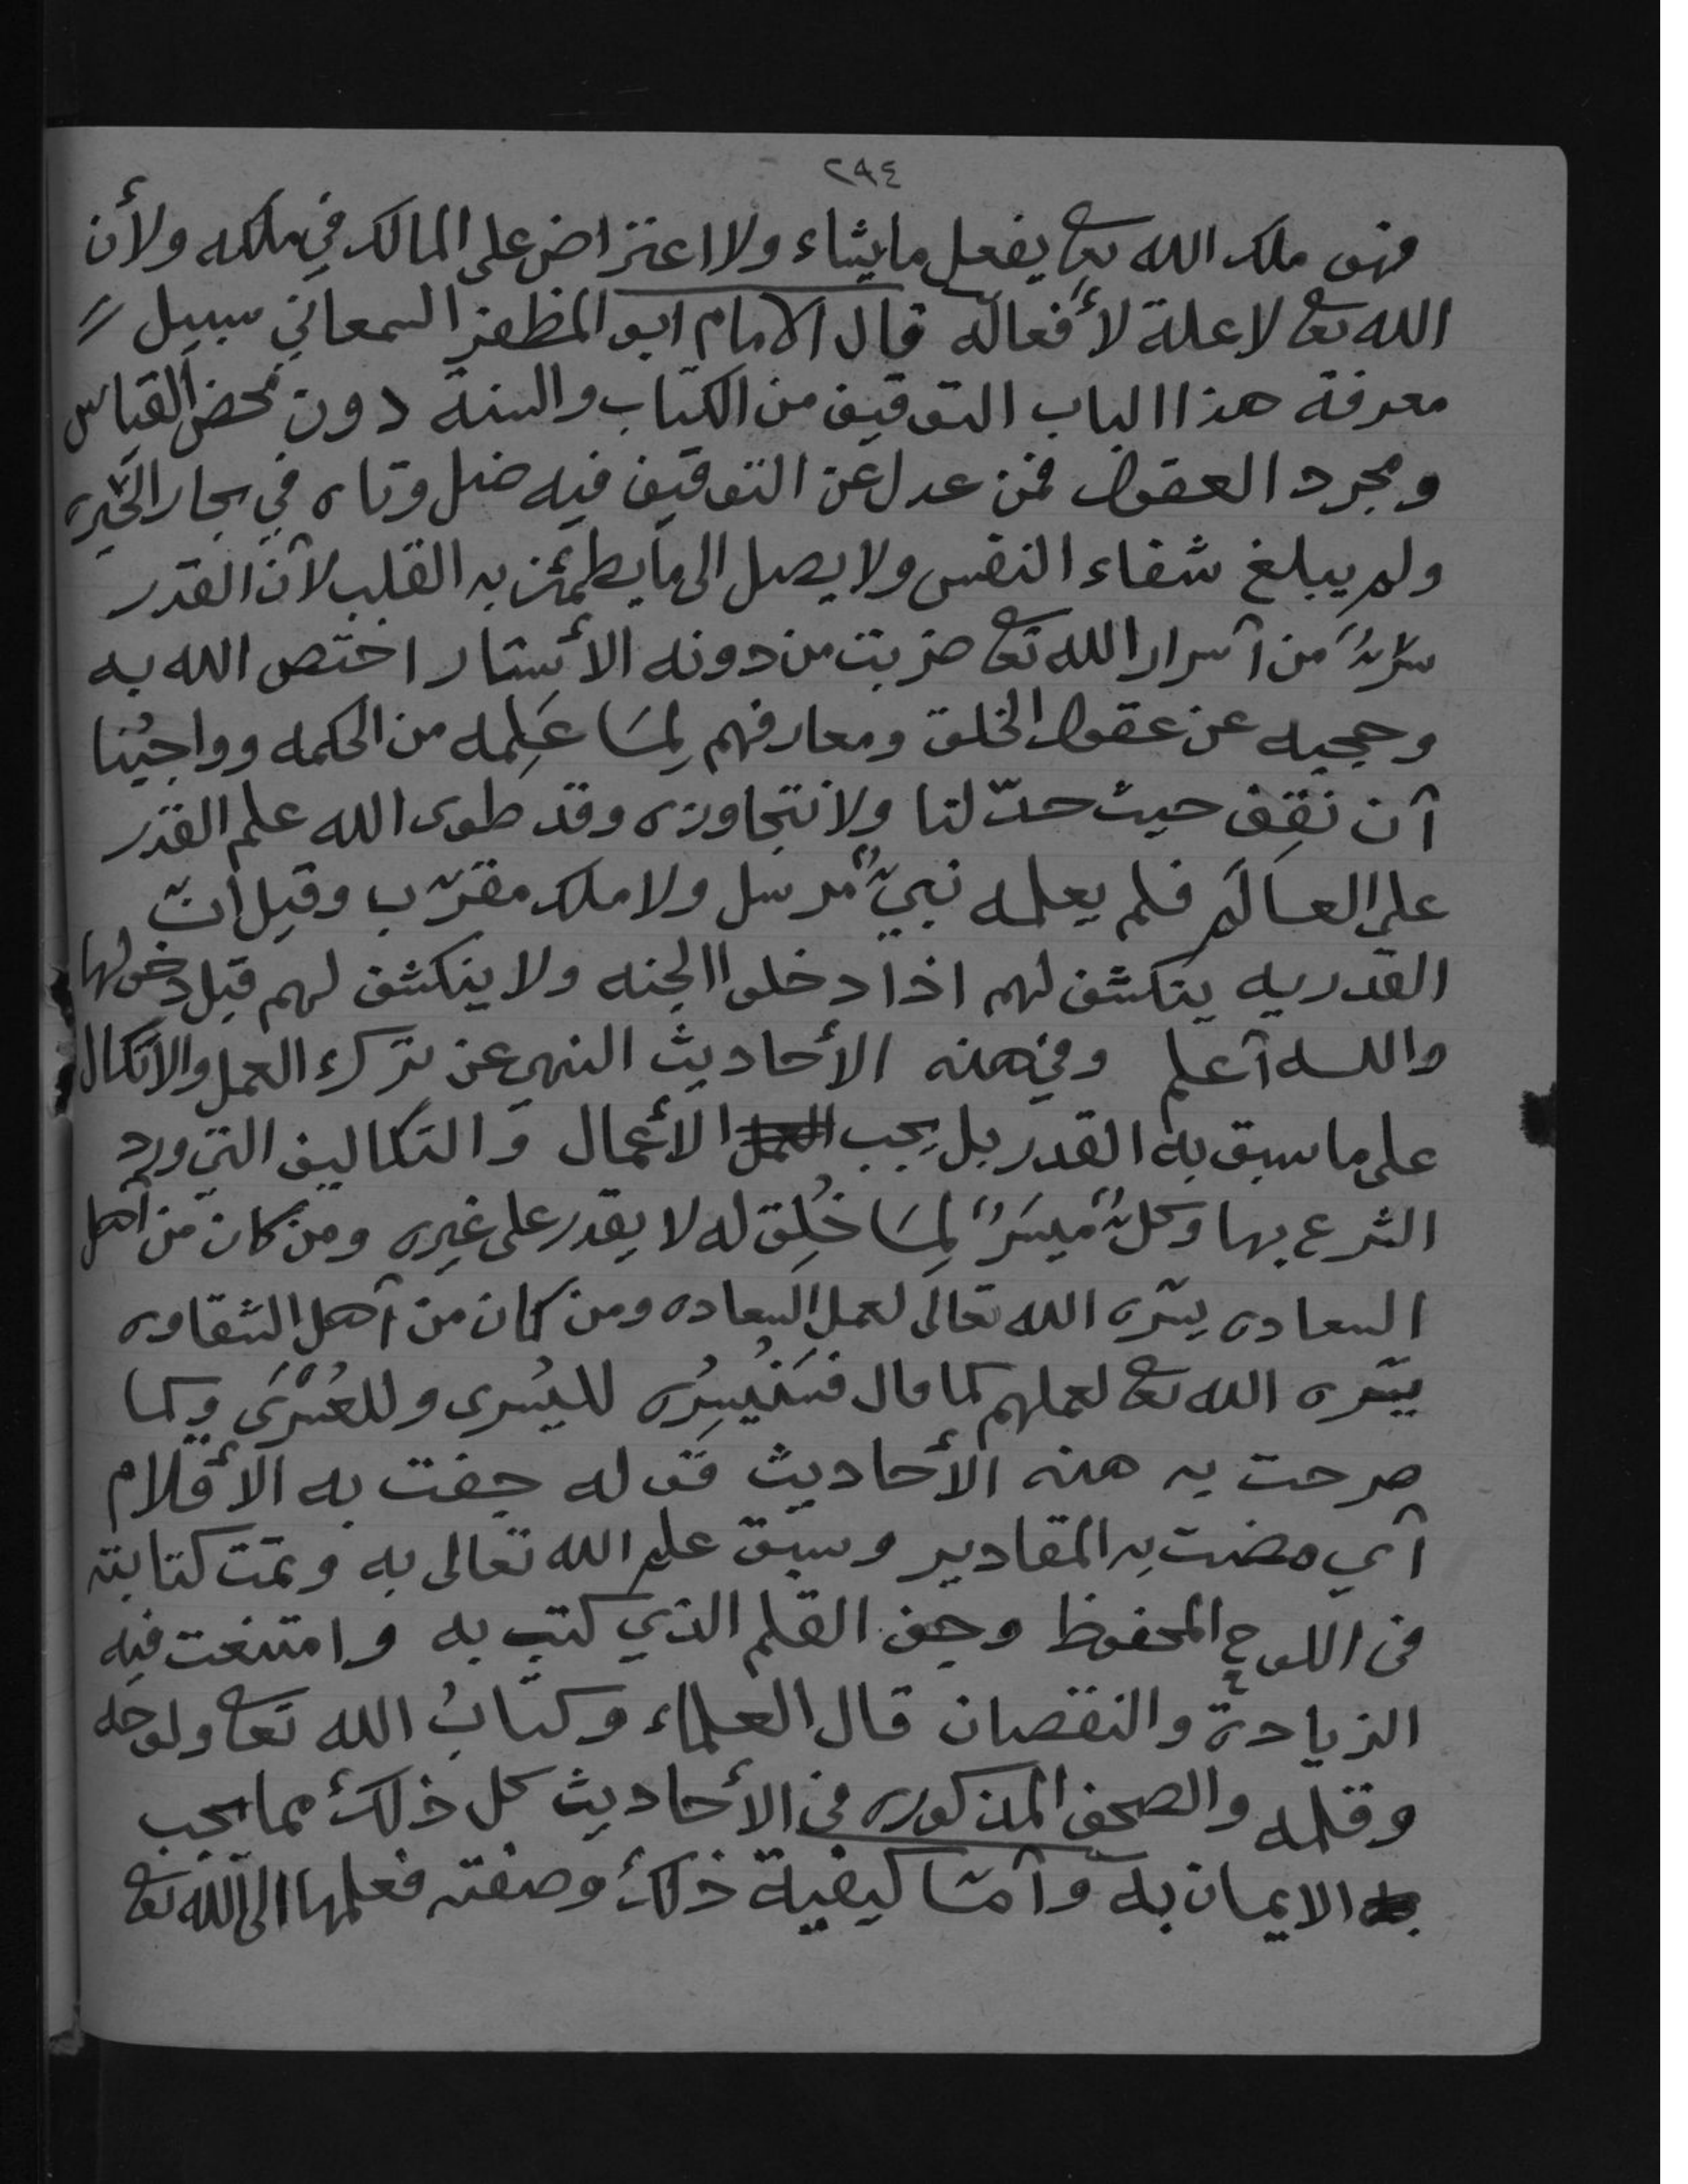 ٢٩٤
فهو ملك الله تعا يفعل ما يشاء ولا اعتراض على المالك في ملكه ولأن
الله تعا لا علة لأفعاله قال الامام ابو المظفر السمعاني سبيل
معرفة هذا الباب التوقيف من الكتاب والسنة دون محض القياس
ومجرد العقول فمن عدل عن التوقيف فيه ضل وتاه في بحار الحيره
ولم يبلغ شفاء النفس ولا يصل الى ما يطمئن به القلب لآن القدر
سرٌّ من آسرار الله تعا ضربت من دونه الأستار اختص الله به
وحجبه عن عقول الخلق ومعارفهم لِمَا عَلِمه من الحكمه وواجبُنا
آن نقِف حيث حدّ لنا ولا نتجاوزه وقد طوى الله علم القدر
على العالَم فلم يعلمه نبيٌّ مرسل ولا ملك مقرّب وقيل انّ
القدر يه ينكشف لهم اذا دخلوا الجنه ولا ينكشف لهم قبل دخولها
والله آعلم وفي هذه الأحاديث النهي عن ترك العمل والاتكال
على ما سبق به القدر بل يجب الأعمال والتكاليف التي ورد
الشرع بها وكلٌّ ميسَرٌ لِمَا خُلِق له لا يقدر على غيره ومن كان من آهل
السعاده يسّره الله تعالى لعمل السعاده ومن كان من آهل الشقاوه
يسّره الله تعا لعملهم كما قال فسَنُيسِرُه لليُسرى وللعُسْرَى وكما
صرحت به هذه الأحاديث قوله جفت به الأقلام
آي مضت به المقادير وسبق علم الله تعالى به وتمت كتابته
في اللوح المحفوظ وجف القلم الذي كتب به وامتنعت فيه
الزيادة والنقصان قال العلماء وكتابُ الله تعا ولوحه
وقلمه والصحف المذكوره في الأحاديث كل ذلك مما يجب
الايمان به وآمّا كيفية ذلك وصفته فعلمها الى الله تعا